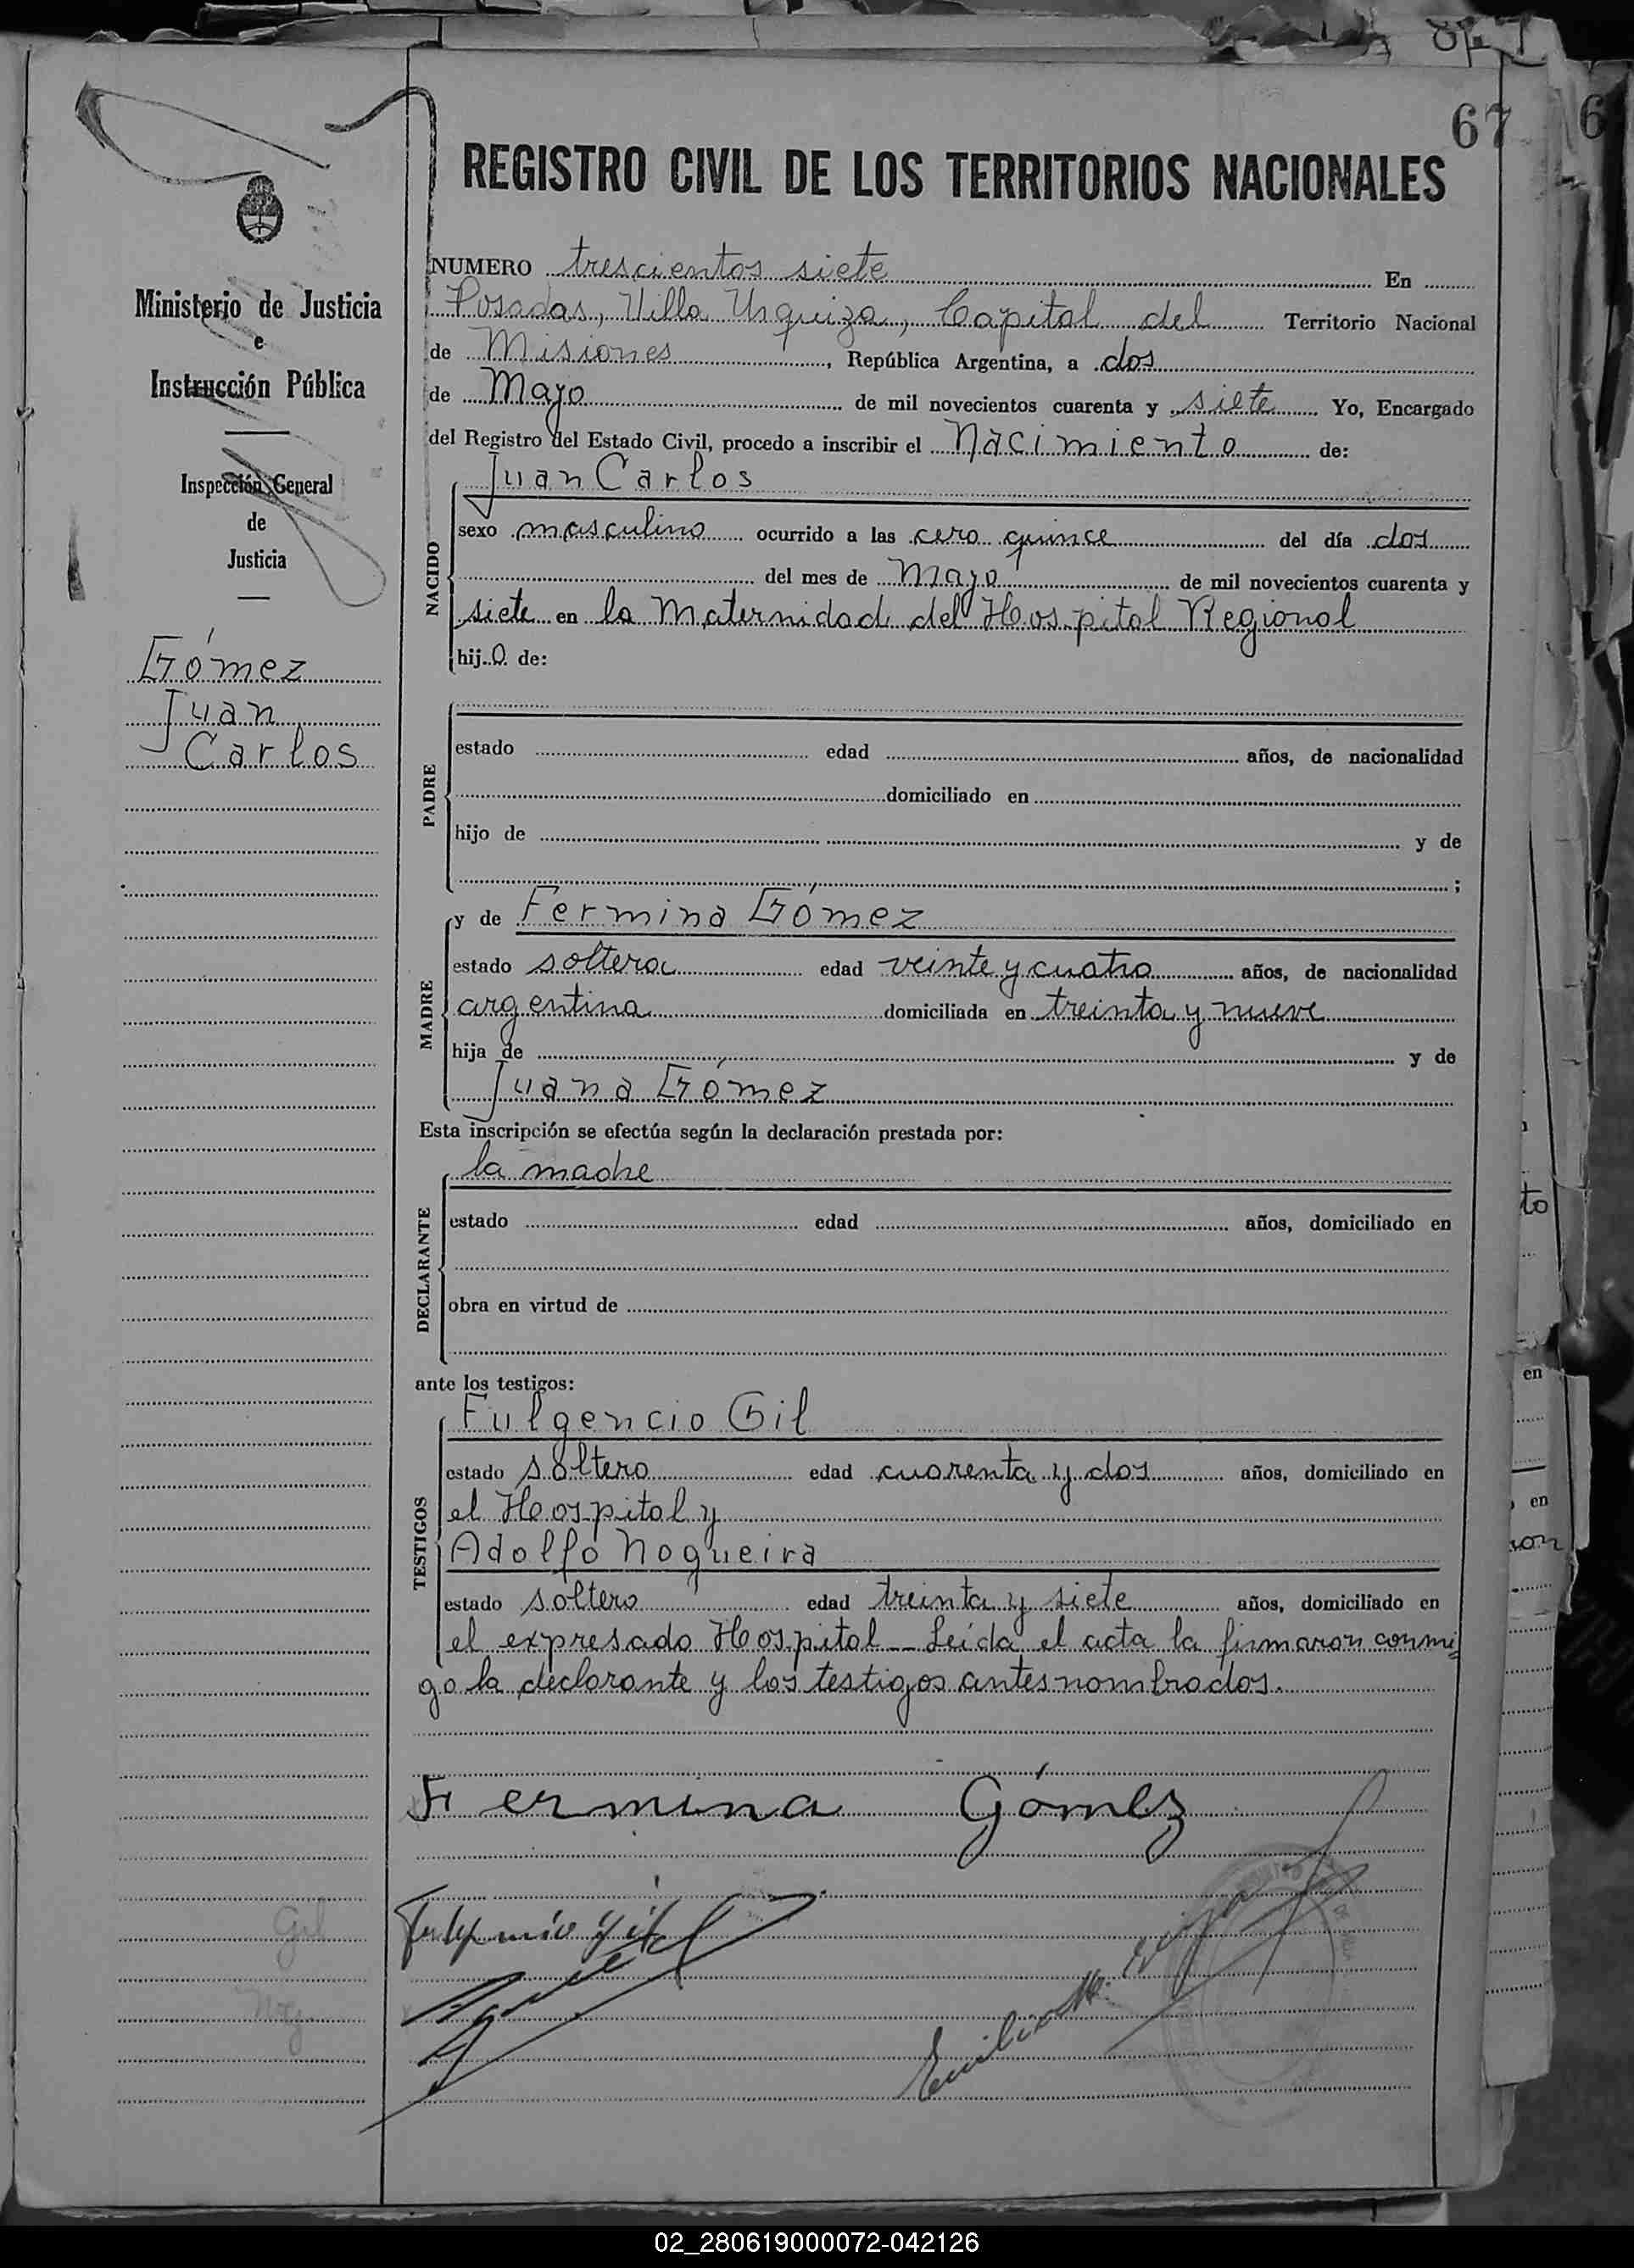 67
REGISTRO CIVIL DE LOS TERRITORIOS NACIONALES
Ministerio de Justicia
e
Instrucción Pública
Inspección General
de
Justicia
Gómez
Juan
Carlos
NUMERO trescientos siete En
Posadas, Villa Urquiza, Capital del Territorio Nacional
de Misiones, República Argentina, a dos
de Mayo de mil novecientos cuarenta y siete Yo, Encargado
del Registro del Estado Civil, procedo a inscribir el Nacimiento de:
Juan Carlos
NACIDO
sexo masculino ocurrido a las cero quince del día dos
del mes de Mayo de mil novecientos cuarenta y
siete en la Maternidad del Hospital Regional
hijo de:
PADRE
estado edad años, de nacionalidad
domiciliado en
hijo de y de
;
MADRE
y de Fermina Gómez
estado soltera edad veinte y cuatro años, de nacionalidad
argentina domiciliada en treinta y nueve
hija de y de
Juana Gómez
Esta inscripción se efectúa según la declaración prestada por:
la madre
DECLARANTE
estado edad años, domiciliado en
obra en virtud de
ante los testigos:
TESTIGOS
Fulgencio Gil
estado soltero edad cuarenta y dos años, domiciliado en
el Hospital y
Adolfo Nogueira
estado soltero edad treinta y siete años, domiciliado en
el expresado Hospital — Leída el acta la firmaron conmi
go la declarante y los testigos antes nombrados.
Fermina Gómez
Fulgencio Gil
Gil
to
en
en
02_280619000072-042126